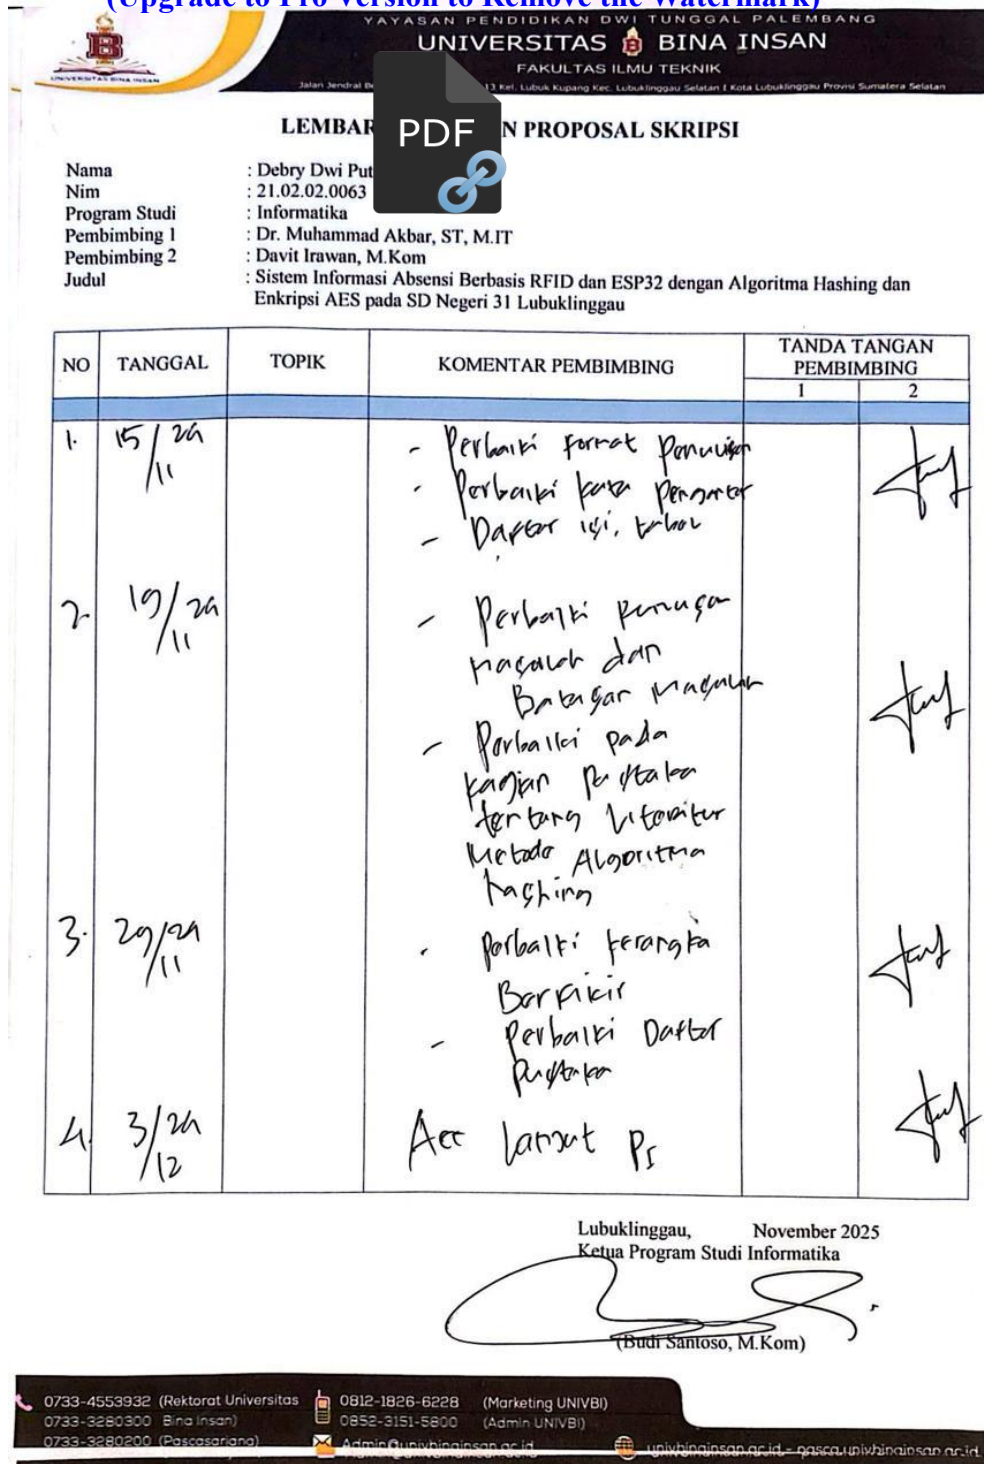 (Upgrade to Pro Version to Remove the Watermark)
YAYASAN PENDIDIKAN DWI TUNGGAL PALEMBANG
UNIVERSITAS BINA INSAN
UNIVERSITAS BINA INSAN
FAKULTAS ILMU TEKNIK
Jalan Jendral 13 Kel. Lubuk Kupang Kec. Lubuklinggau Selatan I Kota Lubuklinggau Provinsi Sumatera Selatan
PDF
LEMBAR PROPOSAL SKRIPSI
Nama : Debry Dwi Put
Nim : 21.02.02.0063
Program Studi : Informatika
Pembimbing 1 : Dr. Muhammad Akbar, ST, M.IT
Pembimbing 2 : Davit Irawan, M.Kom
Judul : Sistem Informasi Absensi Berbasis RFID dan ESP32 dengan Algoritma Hashing dan
Enkripsi AES pada SD Negeri 31 Lubuklinggau
NO TANGGAL TOPIK KOMENTAR PEMBIMBING TANDA TANGAN PEMBIMBING
1 2
1. 15/24/11 - Perbaiki format Penulisan
- Perbaiki kata Pengantar
- Daftar isi, tabel
2. 19/24/11 - Perbaiki rumusan
Masalah dan
Batasan Masalah
- Perbaiki pada
kajian Pustaka
tentang Literatur
Metode Algoritma
hashing
3. 29/24/11 - Perbaiki kerangka
Berfikir
- Perbaiki Daftar
Pustaka
4. 3/24/12 Acc lanjut P1
Lubuklinggau, November 2025
Ketua Program Studi Informatika
(Budi Santoso, M.Kom)
0733-4553932 (Rektorat Universitas 0812-1826-6228 (Marketing UNIVBI)
0733-3280300 Bina Insan) 0852-3151-5800 (Admin UNIVBI)
0733-3280200 (Pascasarjana) Admin@univbinainsan.ac.id univbinainsan.ac.id - pasca.univbinainsan.ac.id